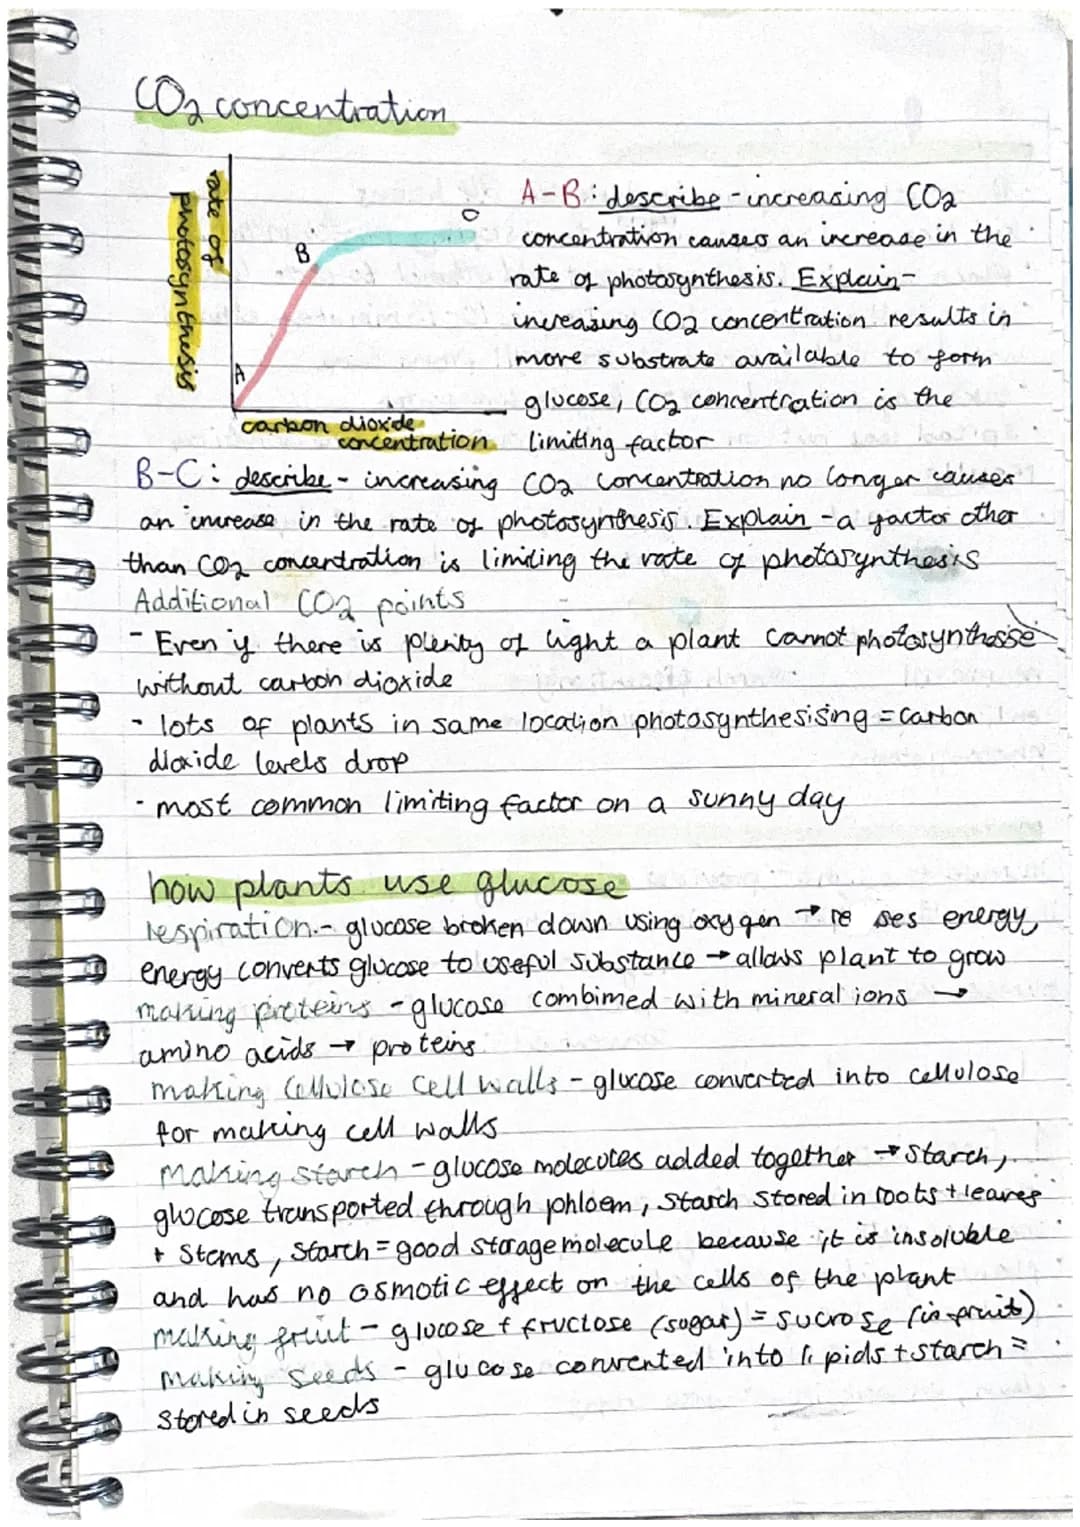 CO2 concentration
rate of
photosynthesis
A
B
C
carbon dioxide
concentration
A-B: describe - increasing CO2
concentration causes an increase in the
rate of photosynthesis. Explain -
increasing CO2 concentration results in
more substrate available to form
glucose, CO2 concentration is the
limiting factor
B-C: describe - increasing CO2 concentration no longer causes
an increase in the rate of photosynthesis. Explain - a factor other
than CO2 concentration is limiting the rate of photosynthesis
Additional CO2 points
- Even if there is plenty of light a plant cannot photosynthesise
without carbon dioxide
- lots of plants in same location photosynthesising = carbon
dioxide levels drop
- most common limiting factor on a sunny day
how plants use glucose
respiration - glucose broken down using oxygen → re ses energy,
energy converts glucose to useful substance → allows plant to grow
making proteins - glucose combimed with mineral ions →
amino acids → proteins
making cellulose cell walls - glucose converted into cellulose
for making cell walls
Making starch - glucose molecules added together → starch,
glucose transported through phloem, starch stored in roots + leaves
+ stems, starch = good storage molecule because it is insoluble
and has no osmotic effect on the cells of the plant
making fruit - glucose + fructose (sugar) = sucrose (in fruit)
making seeds - glucose converted into lipids + starch =
stored in seeds